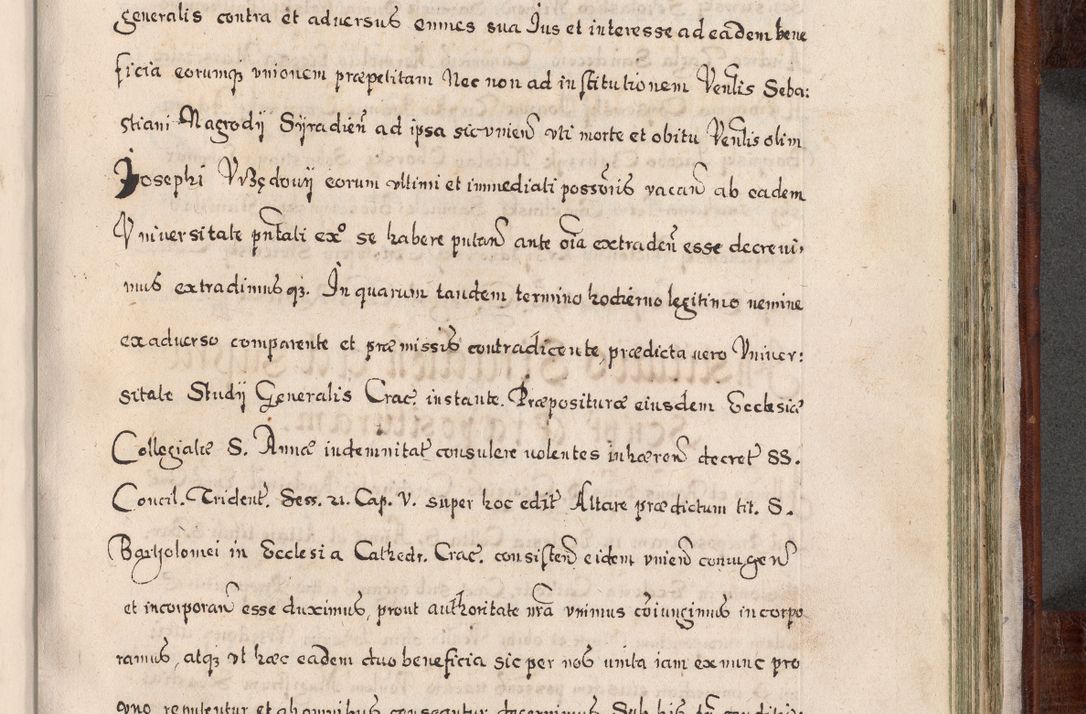 generalis contra et adversus omnes sua Jus et interesse ad eadem bene
ficia eorumqꝫ vnionem præpetitam Nec non ad institutionem Venlis Seba:
stiani Nagrodÿ Sÿradień ad ipsa sic vnień vti morte et obitu Venlis olim
Josephi Vrzędovÿ eorum vltimi et immediati possōris vacań ab eadem
Vniversitate pn̄tali exº se habere putań ante oīa extradeń esse decrevi,
mus extradimusqꝫ. In quarum tandem termino hodierno legitimo nemine
ex adverso comparente et præmissis contradicente, prædicta vero Vniver:
sitate Studÿ Generalis Crac̃ instante. Præposituræ eiusdem Ecclesiæ
Collegiatæ S. Annæ indemnitat̃ consulere volentes inhæreń decret̃ SS.
Concil. Trident̃. Sess. 21. Cap. V. super hoc edit̃ Altare prædictum tit. S.
Bartholomei in Ecclesia Cathedr. Crac̃. consisteń eidem vnień coniungeń
et incorporań esse duximus, prout authoritate nr̄a vnimus cōiungimus incorpo
ramus, atqꝫ vt hæc eadem duo beneficia sic per nos unita iam ex nunc pro
uno reputentur et ab omnibus censeantur decernimus Sub his